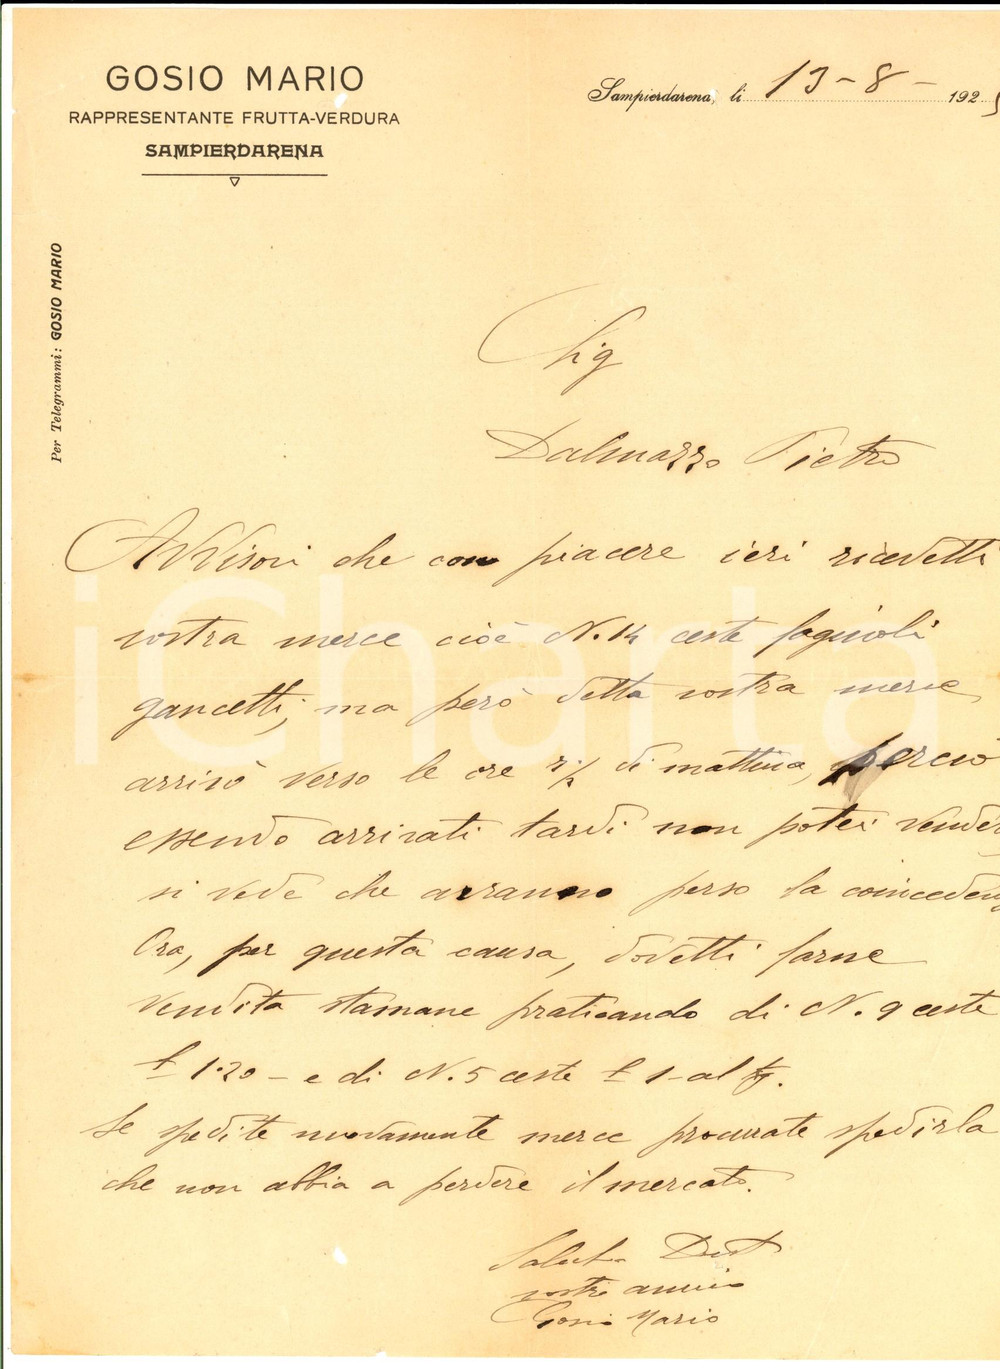 GOSIO MARIO
RAPPRESENTANTE FRUTTA-VERDURA
SAMPIERDARENA
Sampierdarena, li 13-8- 1925
Per Telegrammi: GOSIO MARIO
Sig
Dalmazzo Pietro
Avvisovi che con piacere ieri ricevetti
vostra merce cioè N. 14 ceste fagiuoli
gancetti; ma però detta vostra merce
arrivò verso le ore 7½ di mattina, perciò
essendo arrivati tardi non potei vender
si vede che avranno perso la coincedenz
Ora, per questa causa, dovetti farne
vendita stamane praticando di N. 9 ceste
£ 1.20 - e di N. 5 ceste £ 1 - al Kg.
Se spedite nuovamente merce procurate spedirla
che non abbia a perdere il mercato.
Saluti Dist
vostro amico
Gosio Mario
iCharta